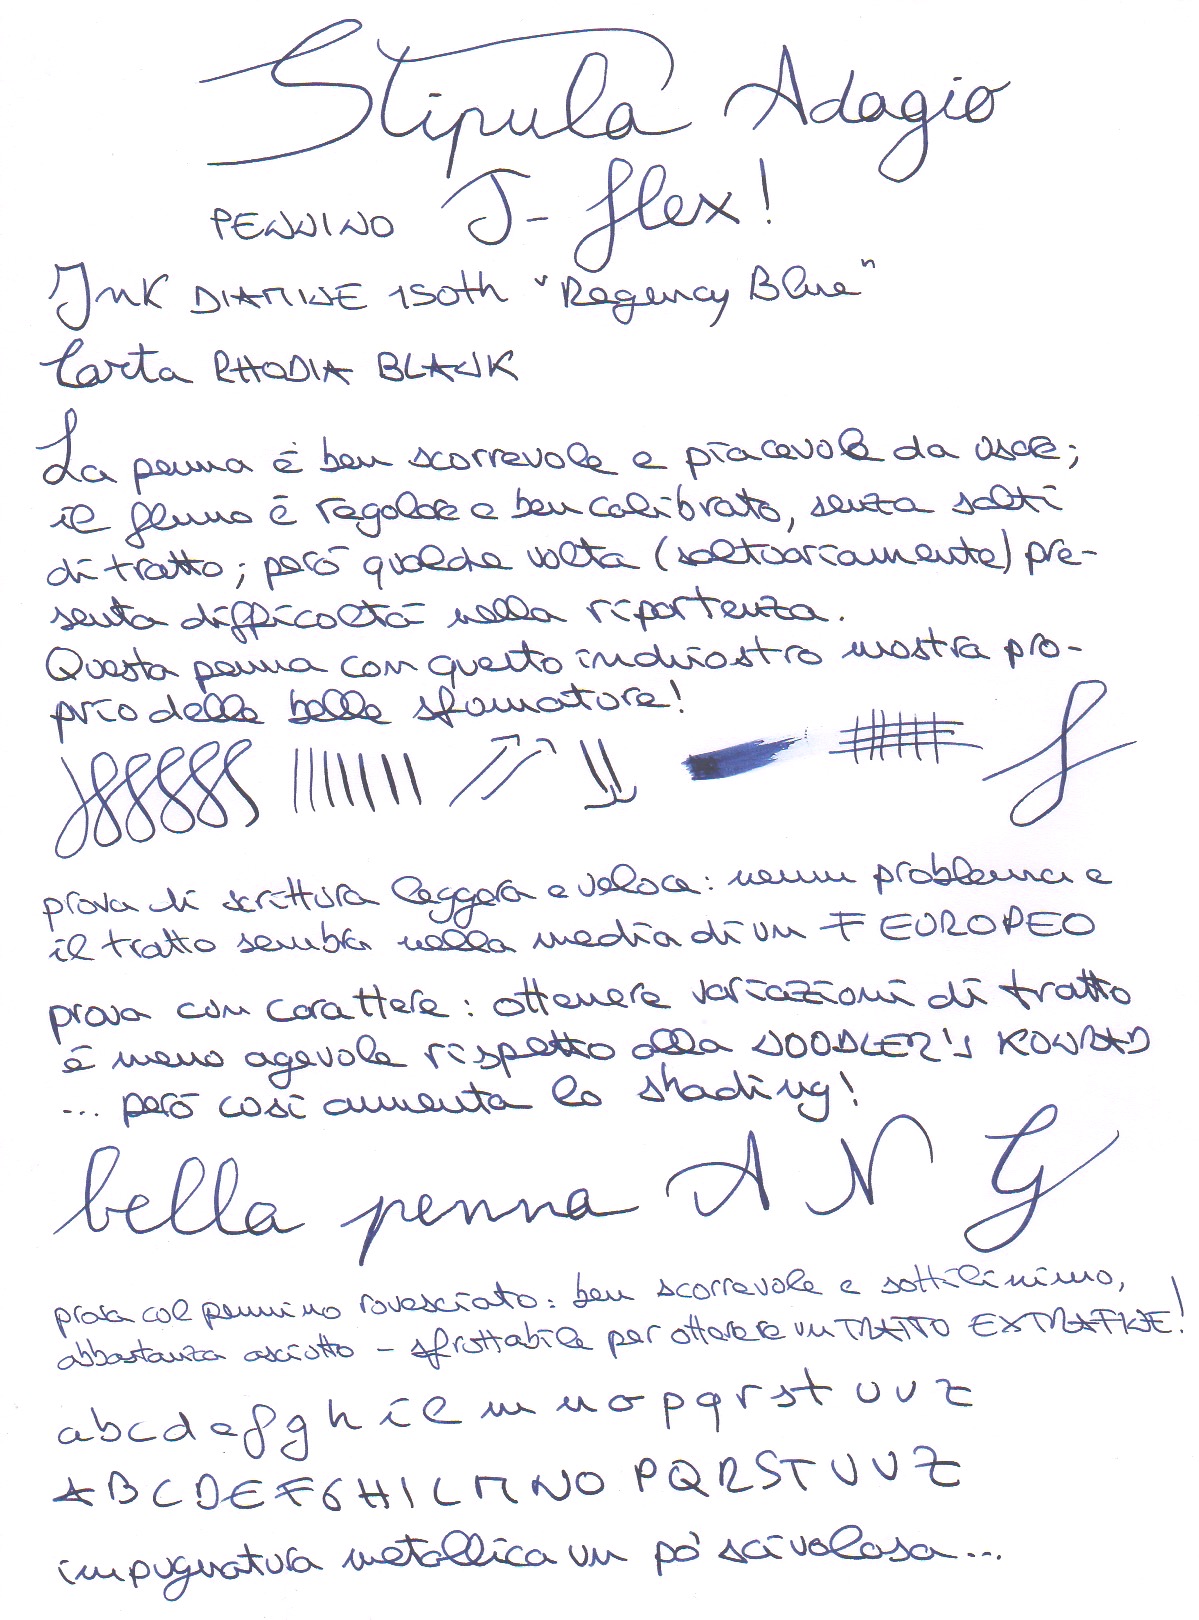 Stipula Adagio
PENNINO T-flex!
Ink DIAMINE 150th "Regency Blue"
Carta RHODIA BLANK
La penna è ben scorrevole e piacevole da usare;
il flusso è regolare e ben calibrato, senza salti
di tratto; però qualche volta (saltuariamente) pre-
senta difficoltà nella ripartenza.
Questa penna con questo inchiostro mostra pro-
prio delle belle sfumature!
prova di scrittura leggera e veloce: nessun problema e
il tratto sembra nella media di un F EUROPEO
prova con carattere: ottenere variazioni di tratto
è meno agevole rispetto alla NOODLER'S KONRAD
... però così aumenta lo shading!
bella penna A N G
prova col pennino rovesciato: ben scorrevole e sottilissimo,
abbastanza asciutto - sfruttabile per ottenere un TRATTO EXTRAFINE!
abcdefghilmnopqrstuvz
ABCDEFGHILMNOPQRSTUVZ
impugnatura metallica un pò scivolosa...